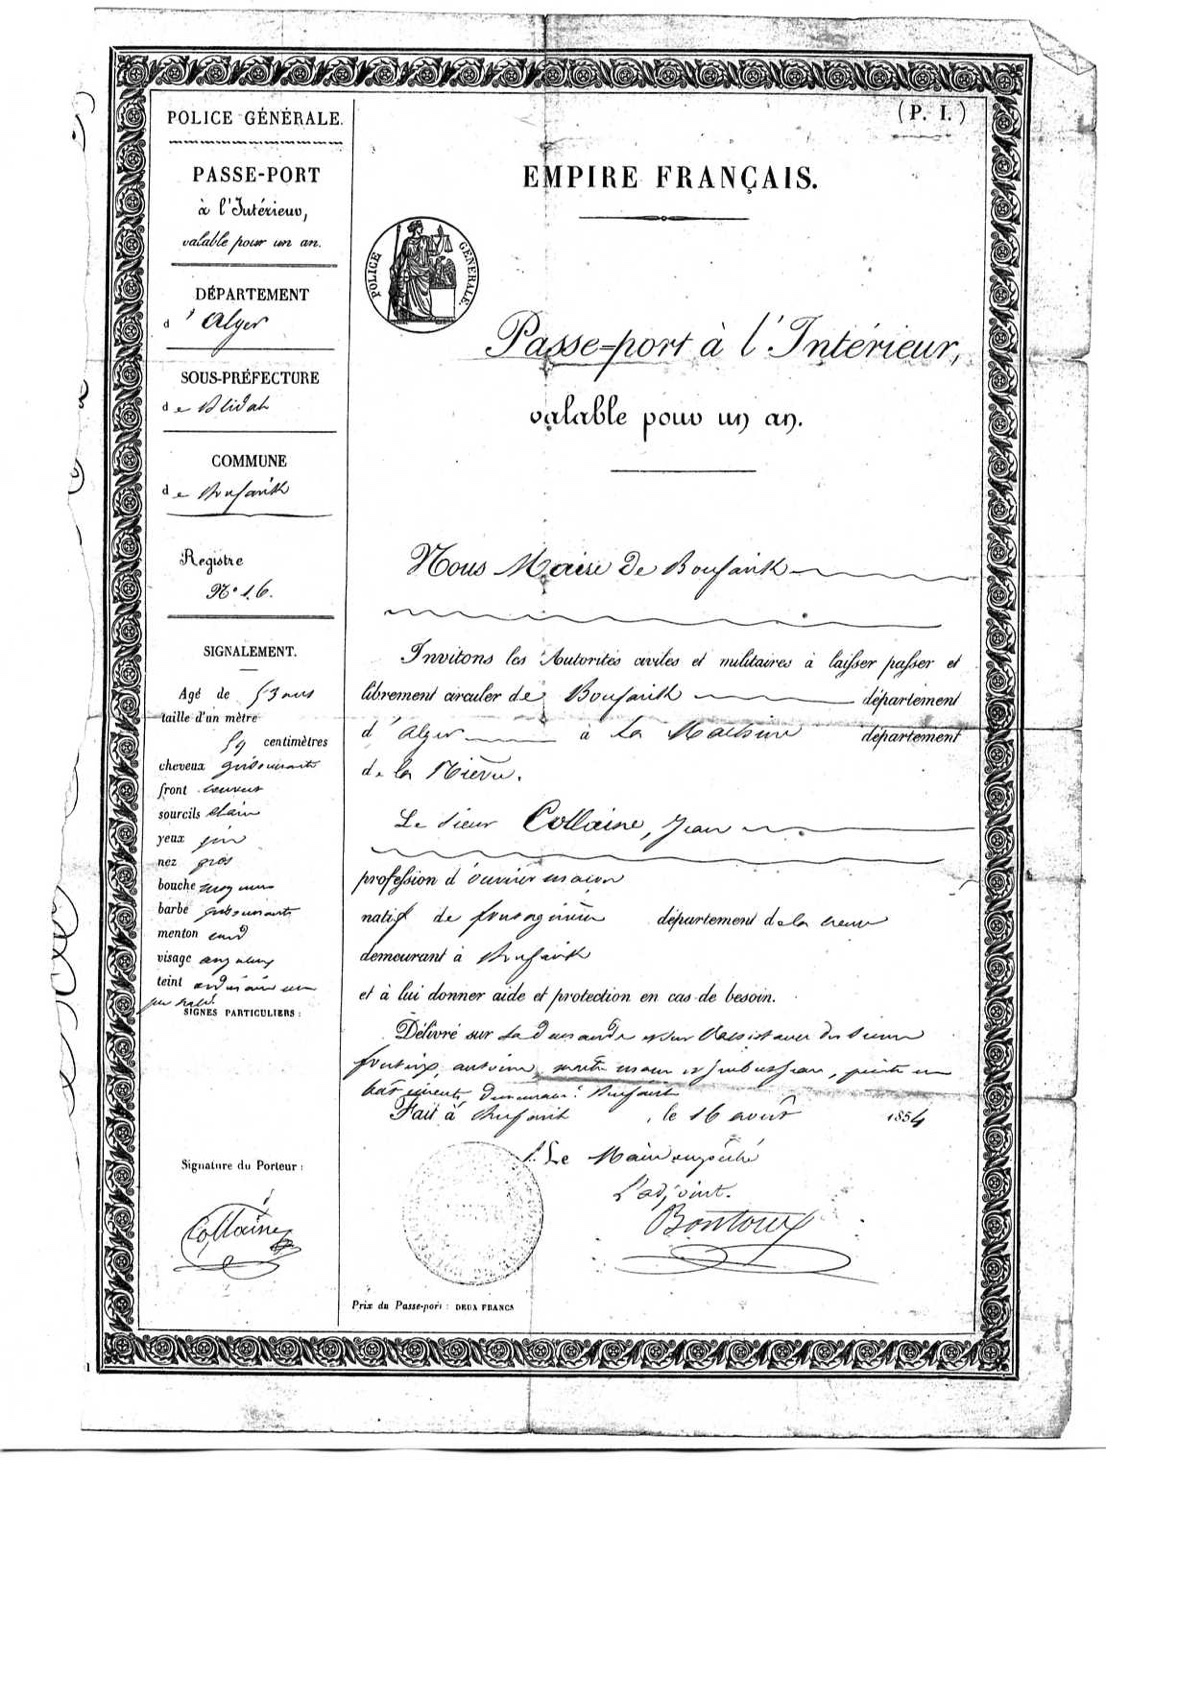 POLICE GÉNÉRALE.
PASSE-PORT
à l'Intérieur,
valable pour un an.
DÉPARTEMENT
d'Alger
SOUS-PRÉFECTURE
de Blidah
COMMUNE
de Boufarik
Registre
N° 16.
SIGNALEMENT.
Agé de 53 ans
taille d'un mètre
59 centimètres
cheveux grisonnants
front couvert
sourcils
yeux
nez gros
bouche moyenne
barbe grisonnante
menton rond
visage
teint ordinaire un
peu
SIGNES PARTICULIERS :
Signature du Porteur :
Collaine
(P. I.)
EMPIRE FRANÇAIS.
POLICE GÉNÉRALE.
Passe-port à l'Intérieur,
valable pour un an.
Nous Maire de Boufarik
Invitons les Autorités civiles et militaires à laisser passer et
librement circuler de Boufarik département
d'Alger à la Machine département
de la Nièvre.
Le sieur Collaine, Jean
profession d'ouvrier maçon
natif de département de la Creuse
demeurant à Boufarik
et à lui donner aide et protection en cas de besoin.
Délivré sur sa demande et sur l'assistance des sieurs
antoine, maître maçon et peintre en
bâtiments, demeurant à Boufarik
Fait à Boufarik, le 16 août 1854
Le Maire empêché
L'adjoint.
Bontoux
Prix du Passe-port : DEUX FRANCS